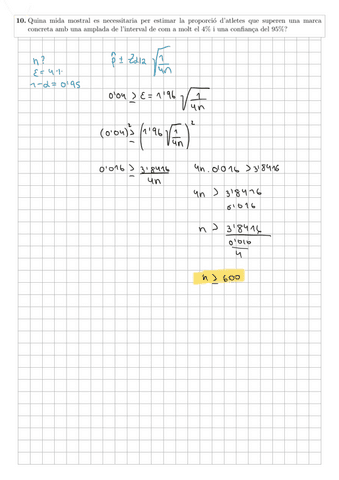 10. Quina mida mostral es necessitaria per estimar la proporció d'atletes que superen una marca
concreta amb una amplada de l'interval de com a molt el 4% i una confiança del 95%?
n?
ε = 4%
1-α = 0'95
p̂ ± Zα/2 √(1/4n)
0'04 ≥ ε = 1'96 √(1/4n)
(0'04)² ≥ (1'96 √(1/4n))²
0'016 ≥ 3'8416/4n
4n · 0'016 ≥ 3'8416
4n ≥ 3'8416/0'016
n ≥ 3'8416/0'016/4
n ≥ 600